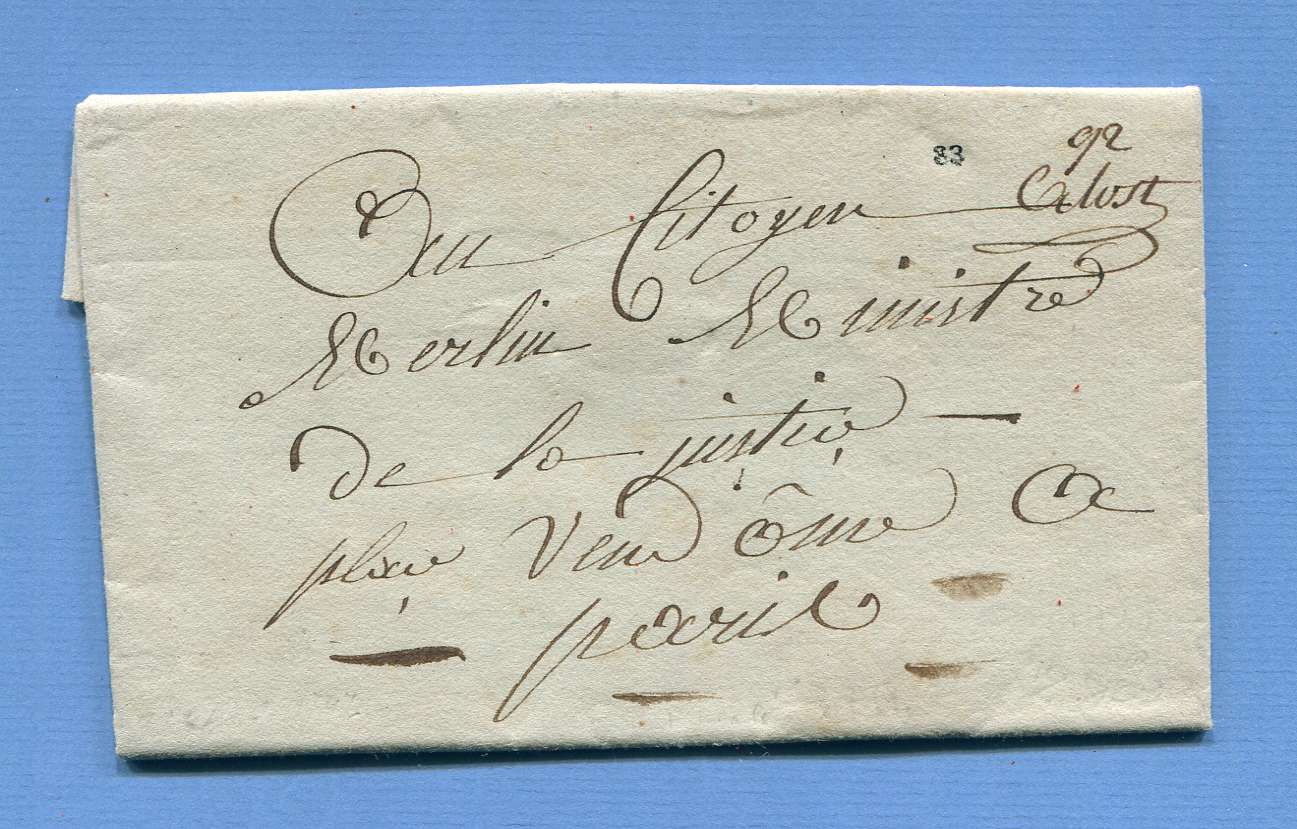 83
92
Alost
Au Citoyen
Merlin Ministre
de la justice
place Vendôme A
paris